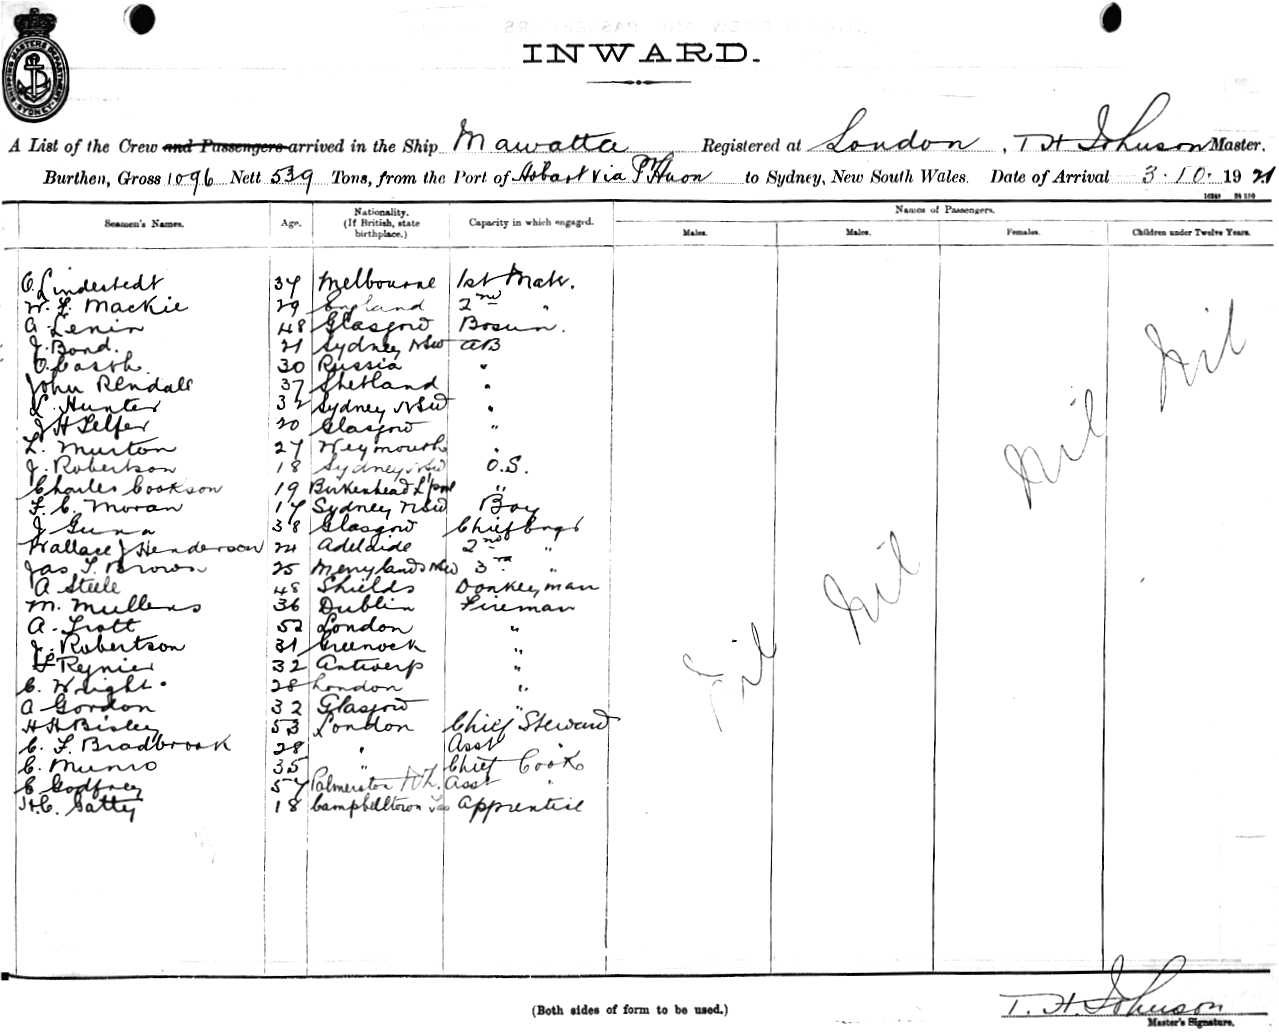 SHIPPING MASTERS DEPARTMENT SYDNEY
INWARD.
A List of the Crew and Passengers arrived in the Ship Mawatta Registered at London, T H Johnson Master.
Burthen, Gross 1096 Nett 539 Tons, from the Port of Hobart via P. Huon to Sydney, New South Wales. Date of Arrival 3.10.1921
Seamen's Names. Age. Nationality. (If British, state birthplace.) Capacity in which engaged. Names of Passengers.
Males. Males. Females. Children under Twelve Years.
C. Lindestedt 37 Melbourne 1st Mate.
W. F. Mackie 29 England 2nd "
A. Lenin 48 Glasgow Bosun.
J. Bond. 21 Sydney NSW AB
30 Russia "
John Rendall 37 Shetland "
L. Hunter 32 Sydney NSW "
J H Telfer 20 Glasgow "
L. Murton 27 Weymouth "
J. Robertson 18 Sydney NSW O.S.
Charles Cookson 19 Birkenhead L'pool "
F. C. Moran 17 Sydney NSW Boy
J Gunn 38 Glasgow Chief Engr
Wallace J Henderson 24 Adelaide 2nd "
Jas F. Brown 25 Merrylands NSW 3rd "
A Steele 48 Shields Donkeyman
M. Mullens 36 Dublin Fireman
A. Trott 52 London "
J. Robertson 31 Greenock "
Reynier 32 Antwerp "
C. Wright. 28 London "
A Gordon 32 Glasgow "
H H Bisley 53 London Chief Steward
C. F. Bradbrook 28 " Asst "
C. Munro 35 " Chief Cook
E Godfrey 57 Palmerston Nth. Asst "
H.C. Gatty 18 Campbelltown Tas Apprentice
Nil Nil Nil Nil
(Both sides of form to be used.)
T. H. Johnson
Master's Signature.